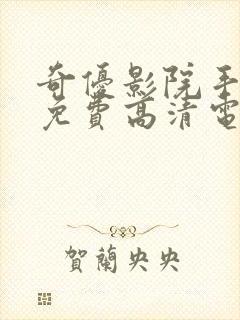 奇優影院手
免費高清電
賀蘭央央